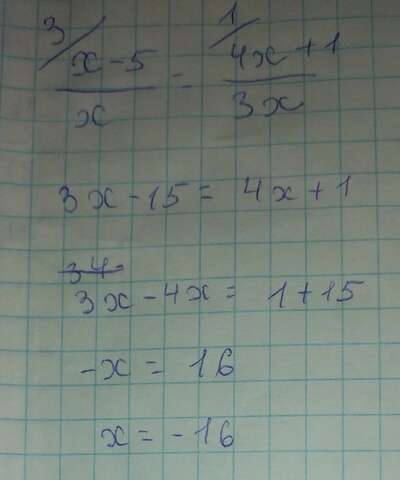 3/ 1/
x - 5 / x = 4x + 1 / 3x
3x - 15 = 4x + 1
3x - 4x = 1 + 15
-x = 16
x = -16